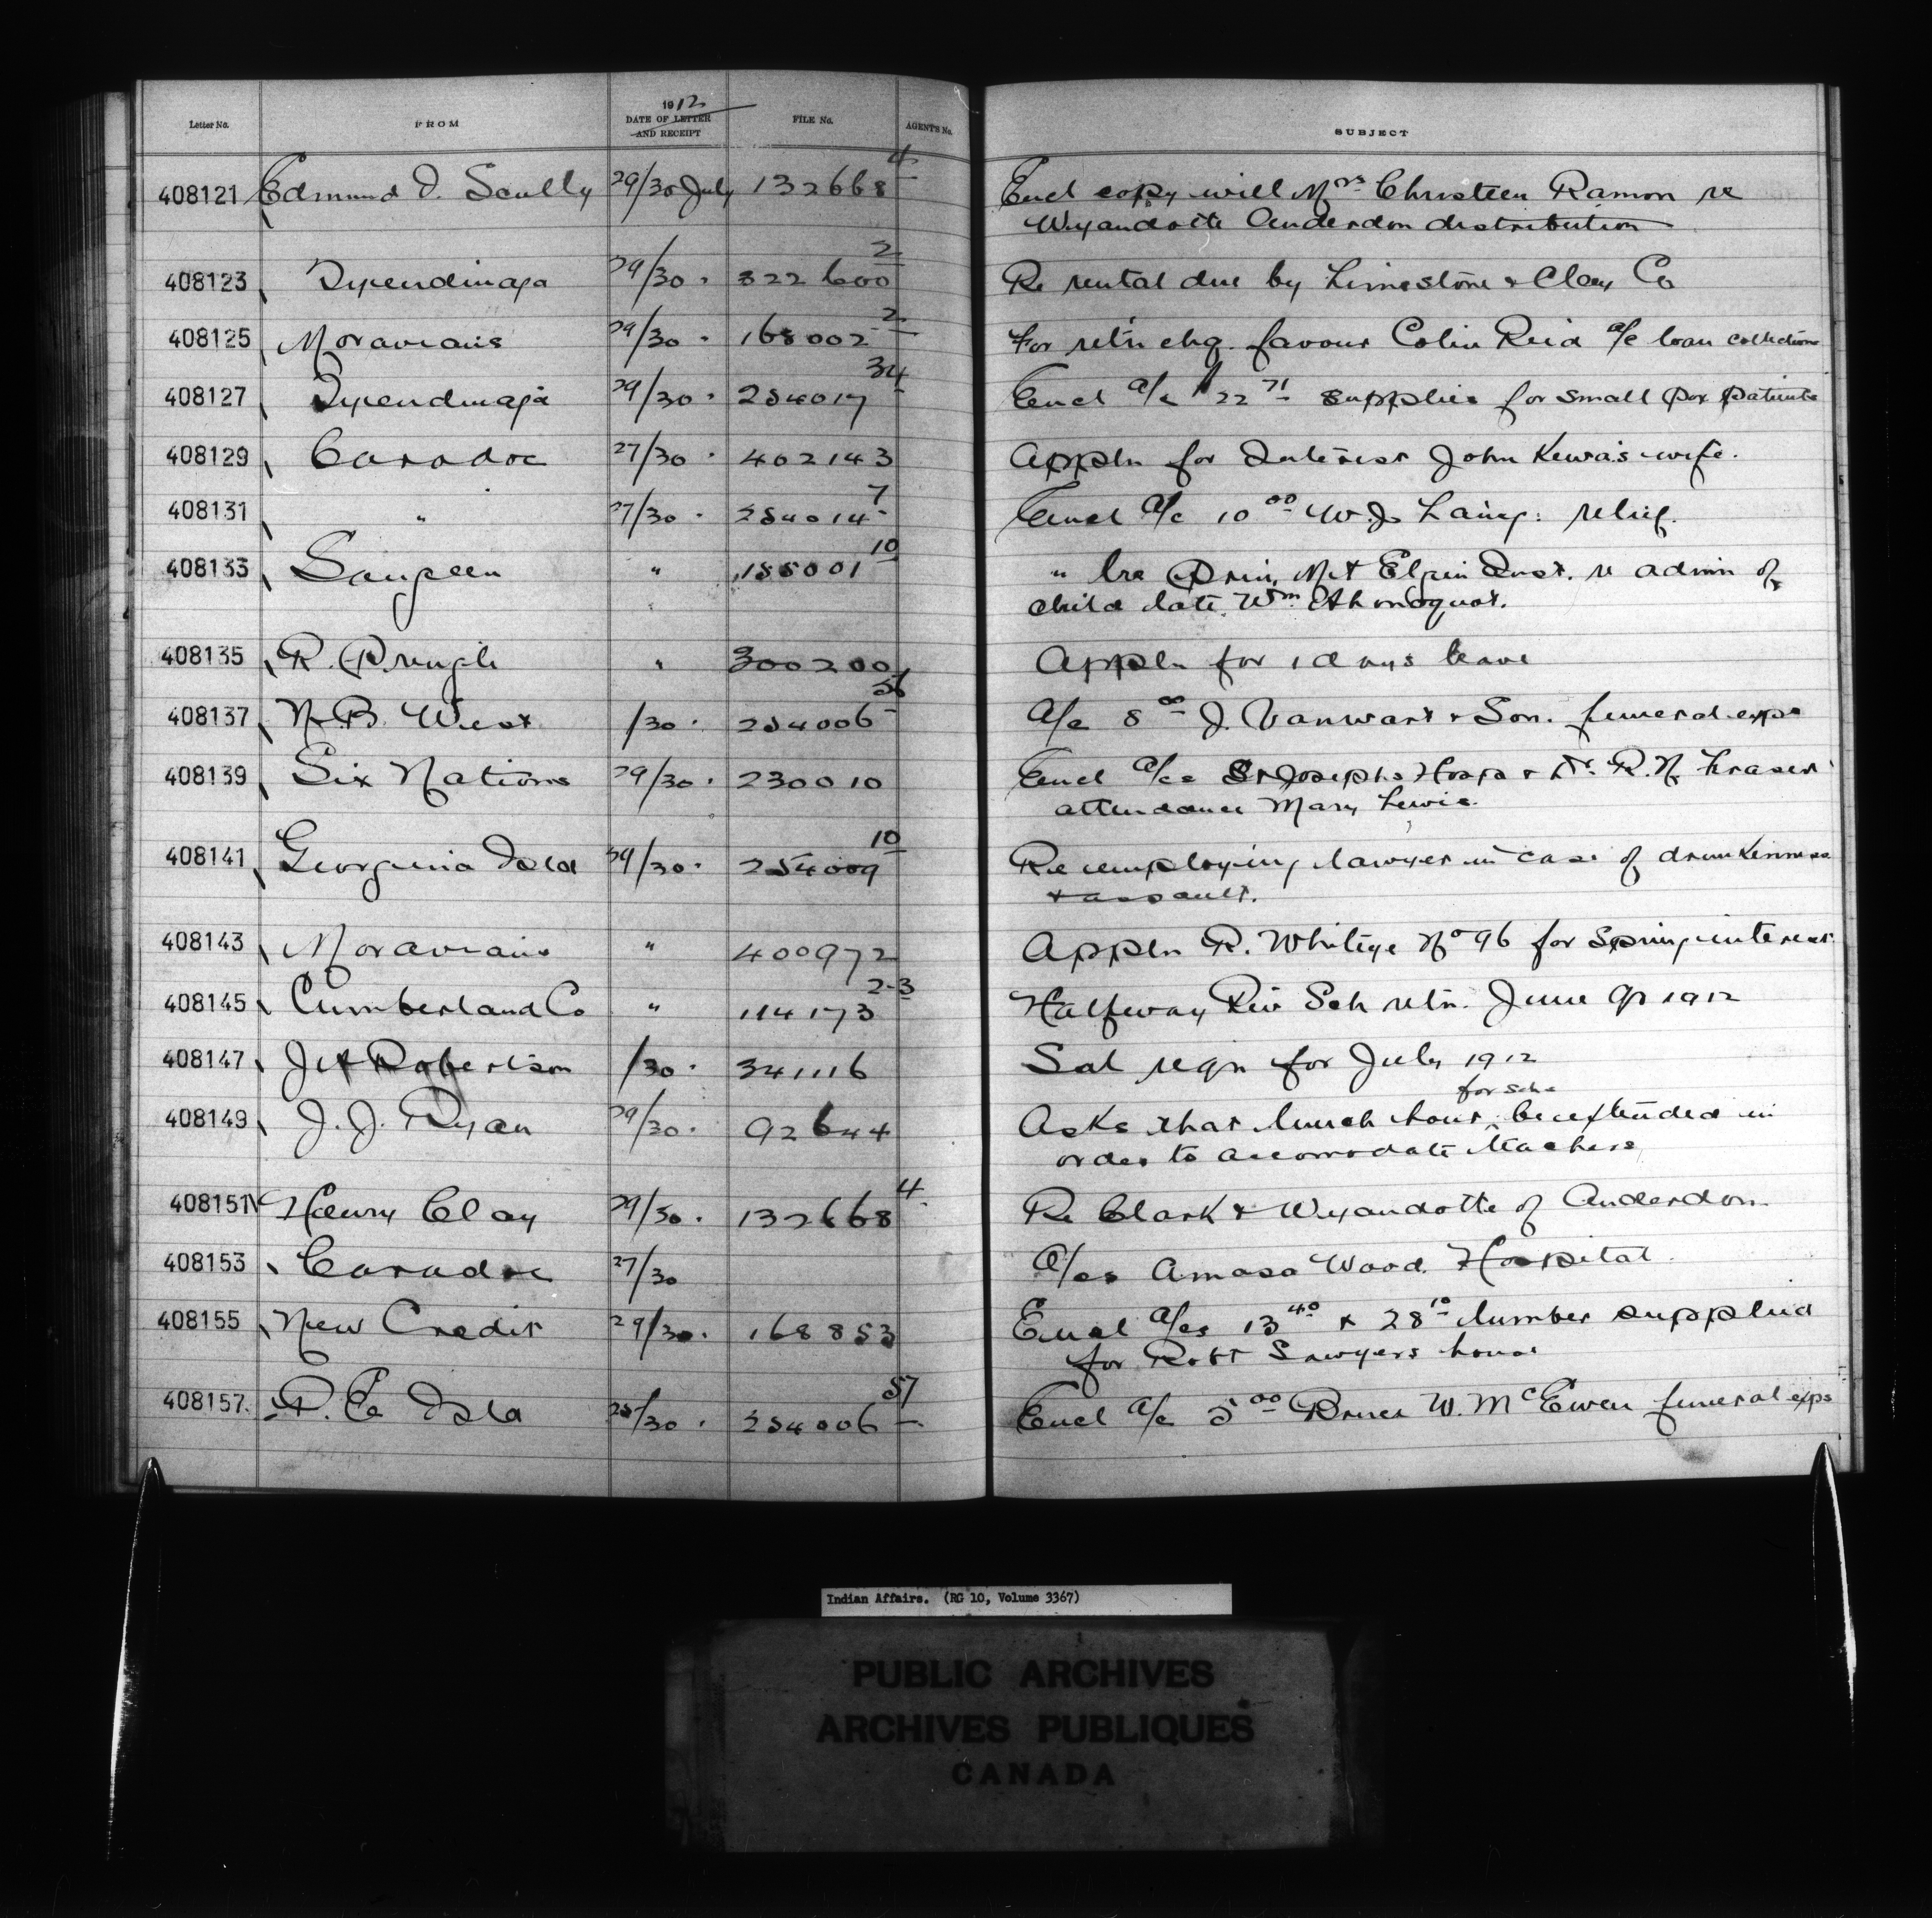 Letter No. FROM 1912 DATE OF LETTER AND RECEIPT FILE No. AGENT'S No. SUBJECT
408121 Edmund D. Scully 29/30 July 132668 4 Encl copy will Mrs Christeen Ramon re
Wyandotte Anderdon distribution
408123 Tyendinaga 29/30 " 322600 2 Re rental due by Limestone & Clay Co
408125 Moravians 29/30 " 168002 2 For retn chq. favour Colin Reid a/c loan collections
408127 Tyendinaga 29/30 " 254017 34 Encl a/c $22 71 supplies for small pox patients
408129 Caradoc 27/30 " 402143 Appln for Interest John Kewa's wife.
408131 " 27/30 " 254014 7 Encl a/c 10 00 W. J. Laing: relief.
408133 Saugeen " 155001 10 " lre Prin. Mt Elgin Inst. re admn of
child late Wm
408135 R. Pringle " 300200 Appln for 1 days leave
408137 N. B. West /30 " 254006 56 A/c 8 00 J. Vanwart & Son. funeral exps
408139 Six Nations 29/30 " 230010 Encl a/cs St Josephs Hosp & Dr. R. N. Fraser
attendance Mary Lewis.
408141 Georgina Isld 29/30 " 254009 10 Re employing lawyer in case of drunkenness
& assault.
408143 Moravians " 400972 Appln R. Whiteye No 96 for Spring interest
408145 Cumberland Co " 114173 2-3 Halfway Riv Sch retn. June Qr 1912
408147 J A Robertson /30 " 341116 Sal reqn for July 1912
for schs
408149 J. J. Ryan 29/30 " 92644 Asks that lunch hour be extended in
order to accomodate teachers
408151 Henry Clay 29/30 " 132668 4 Re Clark & Wyandotte of Anderdon
408153 Caradoc 27/30 A/cs Amasa Wood Hospital
408155 New Credit 29/30 " 168853 Encl a/cs 13 40 & 28 10 lumber supplied
for Robt Sawyers house
408157 P. E. Isld 25/30 " 254006 57 Encl a/c 5 00 Bruce W. McEwen funeral exps
Indian Affairs. (RG 10, Volume 3367)
PUBLIC ARCHIVES
ARCHIVES PUBLIQUES
CANADA